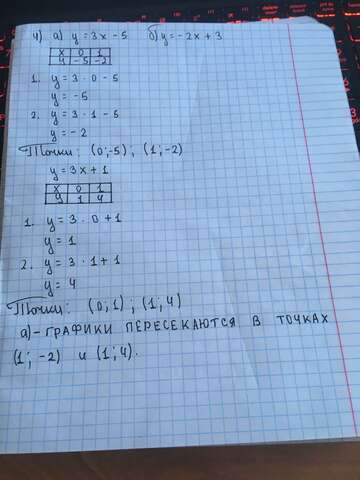 4) а) y = 3x - 5 б) y = -2x + 3
x 0 1
y -5 -2
1. y = 3 · 0 - 5
y = -5
2. y = 3 · 1 - 5
y = -2
Точки: (0;-5); (1;-2)
y = 3x + 1
x 0 1
y 1 4
1. y = 3 · 0 + 1
y = 1
2. y = 3 · 1 + 1
y = 4
Точки: (0;1); (1;4)
а) - ГРАФИКИ ПЕРЕСЕКАЮТСЯ В ТОЧКАХ
(1; -2) и (1; 4).